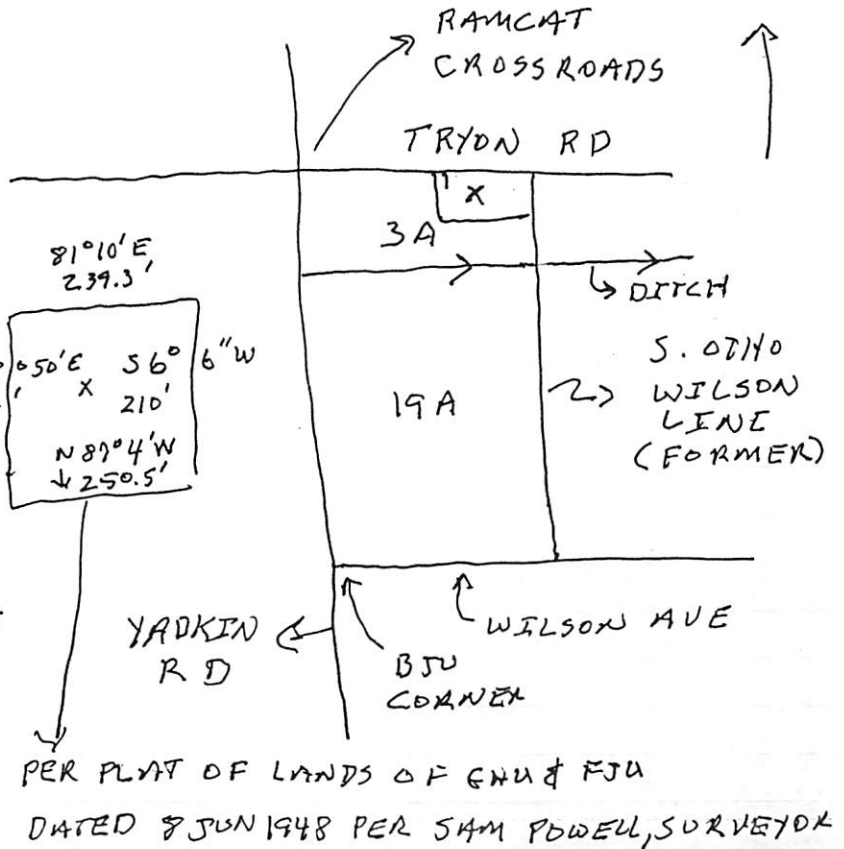 RAMCAT
CROSSROADS
TRYON RD
X
3A
81°10'E
239.3'
DITCH
50'E
S6° 6"W
X
210'
N87°4'W
250.5'
19A
S. OTHO
WILSON
LINE
(FORMER)
YADKIN
RD
WILSON AVE
BJU
CORNER
PER PLAT OF LANDS OF GHU & FJU
DATED 8 JUN 1948 PER SAM POWELL, SURVEYOR